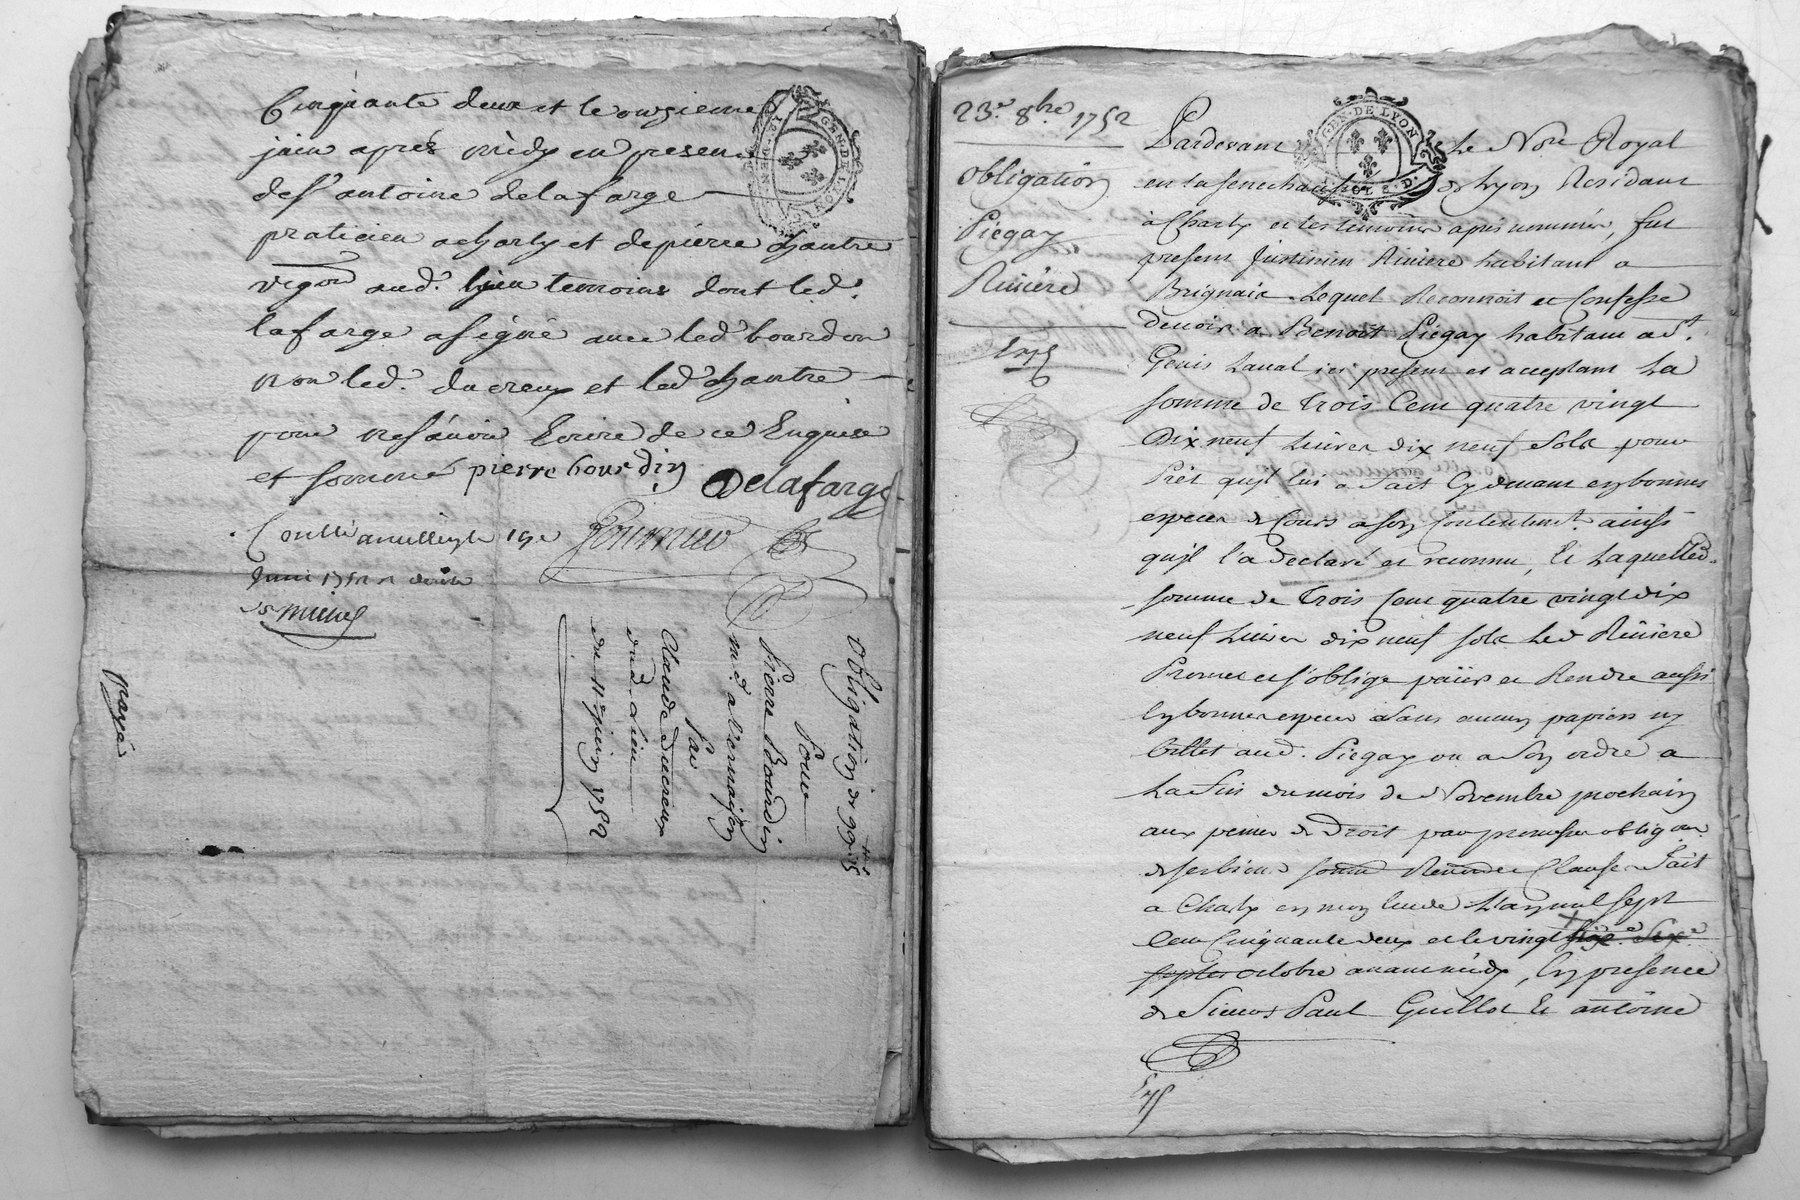 Cinquante deux et le onzieme
juin apres midy en presence
de sr antoine delafarge
praticien a charly et de pierre chantre
vigon aud. lieu temoins dont led.
lafarge a signé avec led bourdin
non led. ducreux et led chantre
pour ne sçavoir Ecrire de ce Enquise
et sommé pierre bourdin
Delafarge
juin 1752
Obligation de 99# 15
Pour
Pierre Bourdin
md. a
Par
Claude Ducreux
dud. Lieu
du 11e juin 1752
payé
GEN·DE LYON
23e. 8bre 1752
Obligation
Piegay
Riviere
GEN·DE LYON
2 S. D.
Pardevant Le Nore Royal
en la senechaussée de Lyon Residant
à Charly et les temoins après nommés, fut
present Justinien Riviere habitant a
Brignais Lequel Reconnoit et Confesse
devoir a Benoit Piegay habitant a St.
Genis Laval ici present et acceptant La
somme de Trois Cent quatre vingt
Dix neuf Livres dix neuf Sols pour
Prêt qu'il lui a fait Cydevant en bonnes
especes de Cours a son Contentemt. ainsi
qu'il l'a declaré et reconnu, Et Laquelle d.
somme de Trois Cent quatre vingt dix
neuf Livres dix neuf sols Led Riviere
Promet et s'oblige païer et Rendre aussi
En bonnes especes Sans aucun papiers ny
billet aud. Piegay ou a Son ordre a
La fin du mois de Novembre prochain
aux peines de Droit par promesse obligaon.
de ses biens soum Renonce Clauses Fait
a Charly en mon Etude L'an mil sept
Cent Cinquante deux et le vingt Sixe.
septe octobre avant midy, En presence
de Sieurs Paul Guillot Et antoine